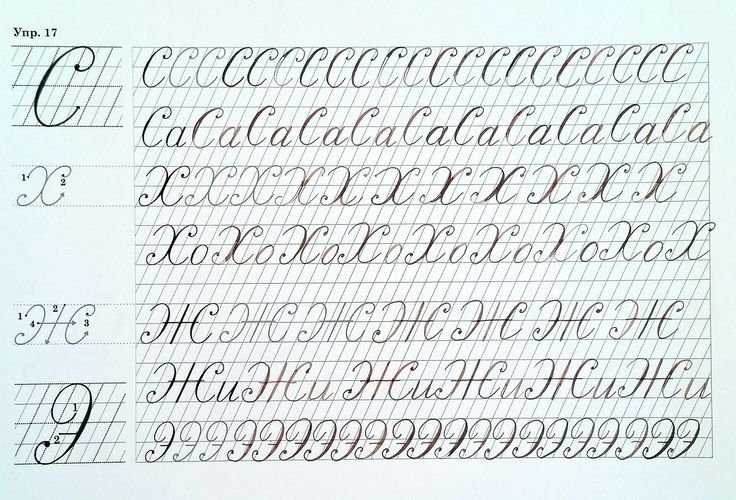 Упр. 17
С
С С С С С С С С С С С С С С С С С С С С С
Са Са Са Са Са Са Са Са Са Са Са
1 Х 2
Х Х Х Х Х Х Х Х Х Х Х
Хо Хо Хо Хо Хо Хо Хо Хо Х
1 2 4 3 Ж
Ж Ж Ж Ж Ж Ж Ж
Жи Жи Жи Жи Жи Жи
Э 1 2
Э Э Э Э Э Э Э Э Э Э Э Э Э Э Э Э Э Э Э Э